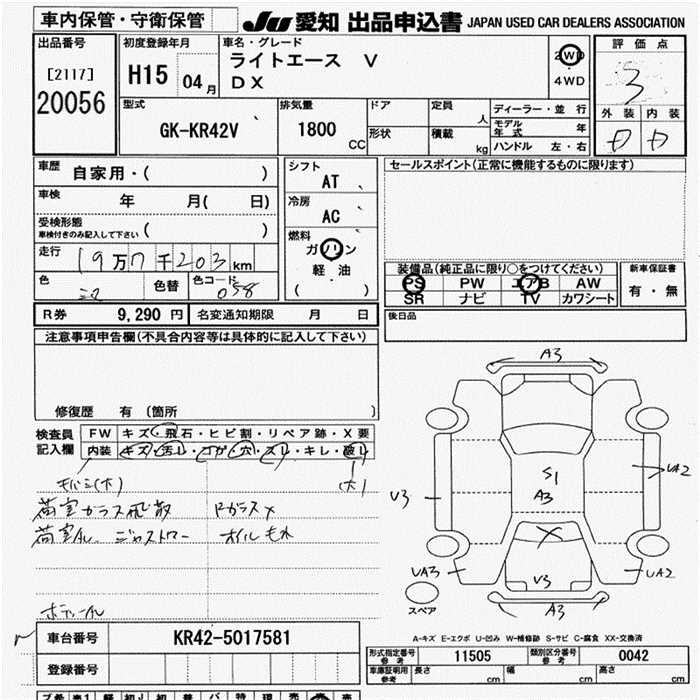 車内保管・守衛保管
JU 愛知 出品申込書 JAPAN USED CAR DEALERS ASSOCIATION
出品番号
[2117]
20056
初度登録年月
H15 04月
車名・グレード
ライトエース V
DX
2WD
4WD
評価点
3
外装 内装
D D
型式
GK-KR42V
排気量
1800 CC
ドア
形状
定員 人
積載 kg
ディーラー・並行
モデル年式 年
ハンドル 左・右
車歴
自家用・( )
車検
年 月(日)
受検形態
車検付きのみ記入して下さい ( )
走行
19万7千203km
色
色替
色コード
058
シフト
AT
冷房
AC
燃料
ガソリン
軽・油
( )
セールスポイント(正常に機能するものに限ります)
装備品(純正品に限り○をつけてください)
PS PW エアB AW
SR ナビ TV カワシート
新車保証書
有・無
R券 9,290円
名変通知期限 月 日
後日品
注意事項申告欄(不具合内容等は具体的に記入して下さい)
修復歴 有 (箇所 )
検査員記入欄
FW キズ・飛石・ヒビ割・リペア跡・X要
内装 キズ・汚レ・コガ・穴・スレ・キレ・破レ
(木)
荷室ガラス飛散 Rガラスx
荷室AL ジャストロー オイルもれ
A3
S1
A3
V3
UA2
UA3
V3
UA2
A3
スペア
A-キズ E-エクボ U-凹み W-補修跡 S-サビ C-腐食 XX-交換済
車台番号
KR42-5017581
登録番号
形式指定番号
参考
11505
類別区分番号
参考
0042
車庫証明用
参考
長さ cm
幅 cm
高さ cm